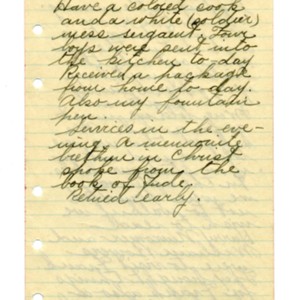 Have a colored cook
and a white (soldier)
mess sergaent. Four
boys were sent into
the kitchen to-day
Received a package
from home to-day.
Also my fountain
pen.
Services in the eve-
ning. A mennonite
brethrn in Christ
spoke from the
book of Jude
Retired early.